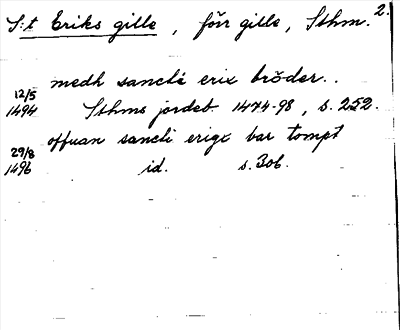 S:t Eriks gille, förr gille, Sthm. 2.
medh sancte erix bröder..
12/5
1494 Sthms jordeb. 1474-98, s. 252.
offuan sancti erigx bar tompt
29/8
1496 id. s. 306.